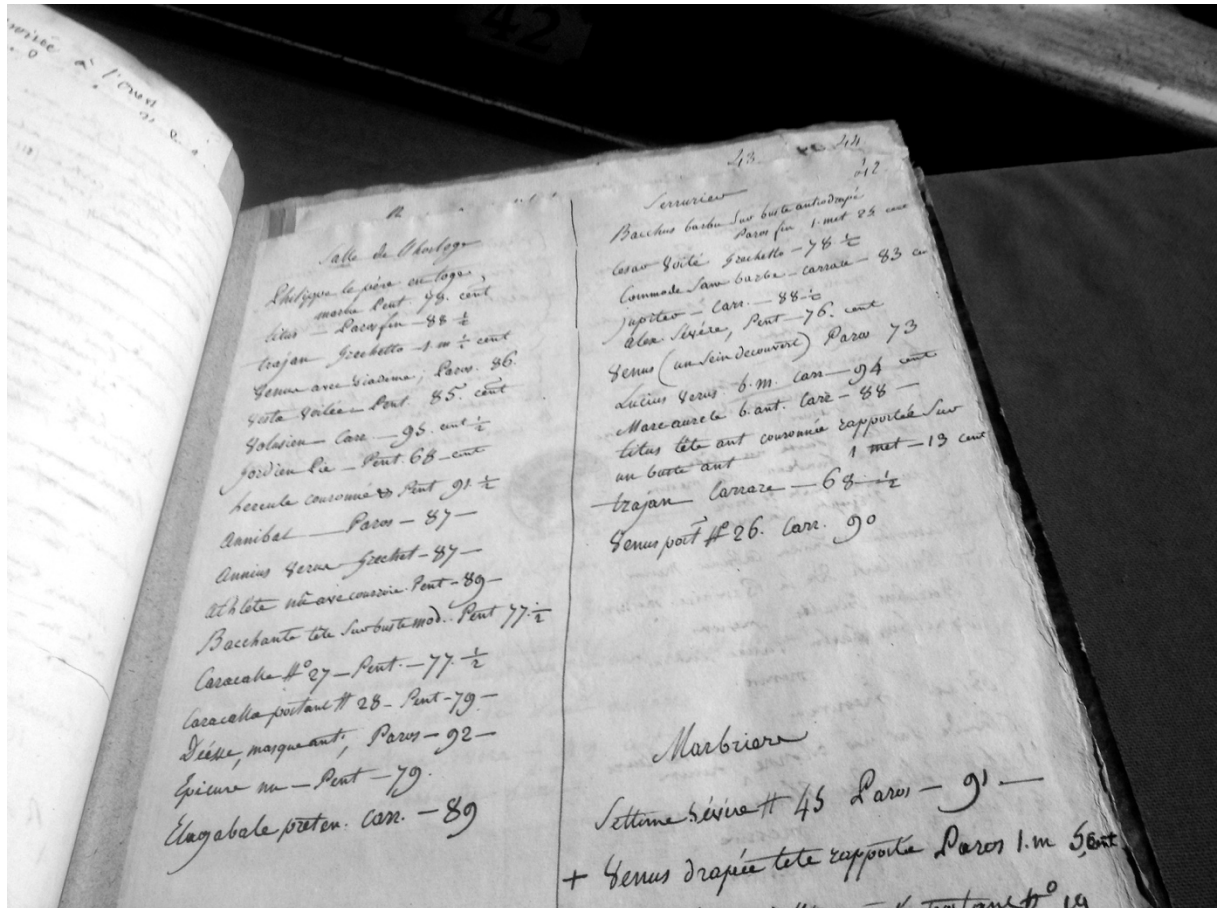 à l'ouest
42
43 44
Salle de l'horloge
Philippe le père en toge,
marbre Pent. 78. cent
titus — Paros fin — 88 ½
trajan Grechetto — 1 m ½ cent
Venus avec diademe, Paros. 86.
Vesta Voilée — Pent. 85. cent
Volusien — Carr. — 95. cent ½
Gordien Pie — Pent. 68 — cent
hercule couronné Pent 91 ½
Annibal — Paros — 87 —
Annius Verus Grechet — 87 —
Athlète nu avec couronne. Pent — 89 —
Bacchante tête sur buste mod. Pent 77. ½
Caracalla N° 27 — Pent. — 77. ½
Caracalla portant N 28 — Pent — 79 —
Déesse, masque ant., Paros — 92 —
Epicure nu — Pent — 79.
Elagabale préten. Carr. — 89
Serrurier
Bacchus barbu sur buste anti drapé
Paros fin 1. met 25 cent
Cesar Voilé Grechetto — 78. ½
Commode sans barbe — carrare — 83 ce
Jupiter — Carr. — 88 ½
Alex Sévère, Pent — 76. cent
Venus (un Sein decouvert) Paros 73
Lucius Verus b. m. Carr — 94 cent
Marc aurele b. ant. Carr — 88 —
titus tête ant couronnée rapportée sur
un buste ant 1 met — 13 cent
trajan Carrare — 68 — ½
Venus port N° 26. Carr. 90
Marbriere
Settime Sévère N 45 Paros — 91 —
+ Venus drapée tete rapporté Paros 1. m 5 cent
portant N° 19